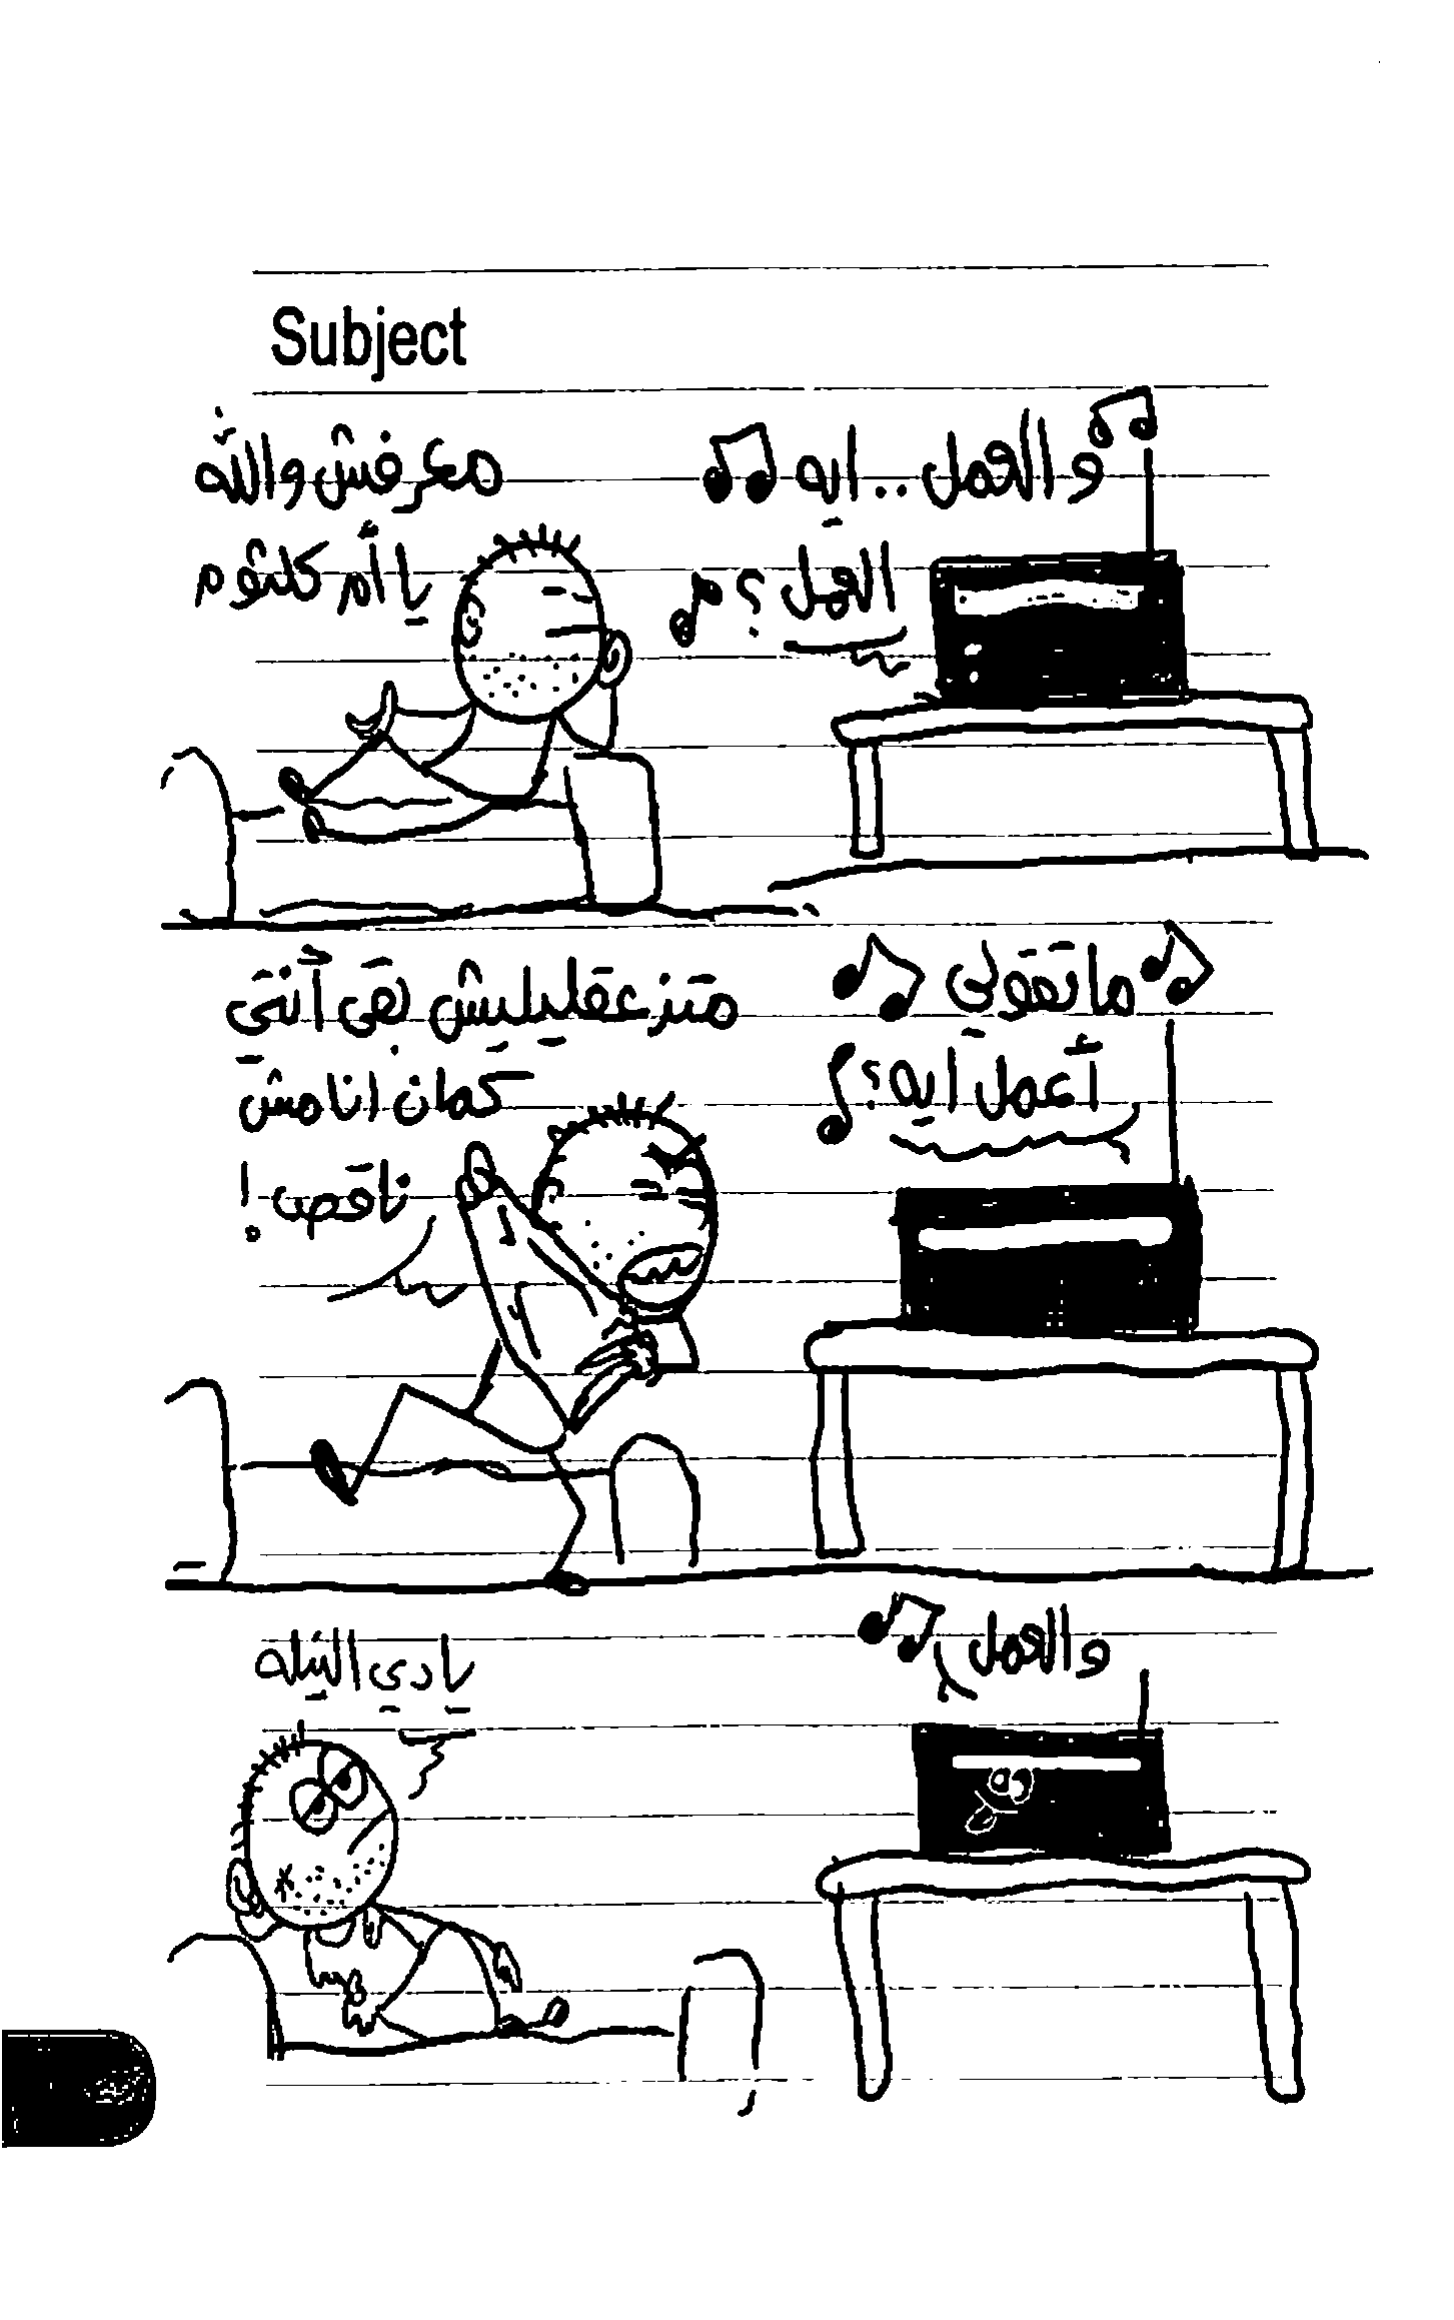 Subject
و العمل .. ايه
العمل ؟
معرفش والله
يا أم كلثوم
ما تقولي
أعمل ايه ؟
متزعقليليش بقى أنتي
كمان انا مش
ناقص !
و العمل
يادي النيله